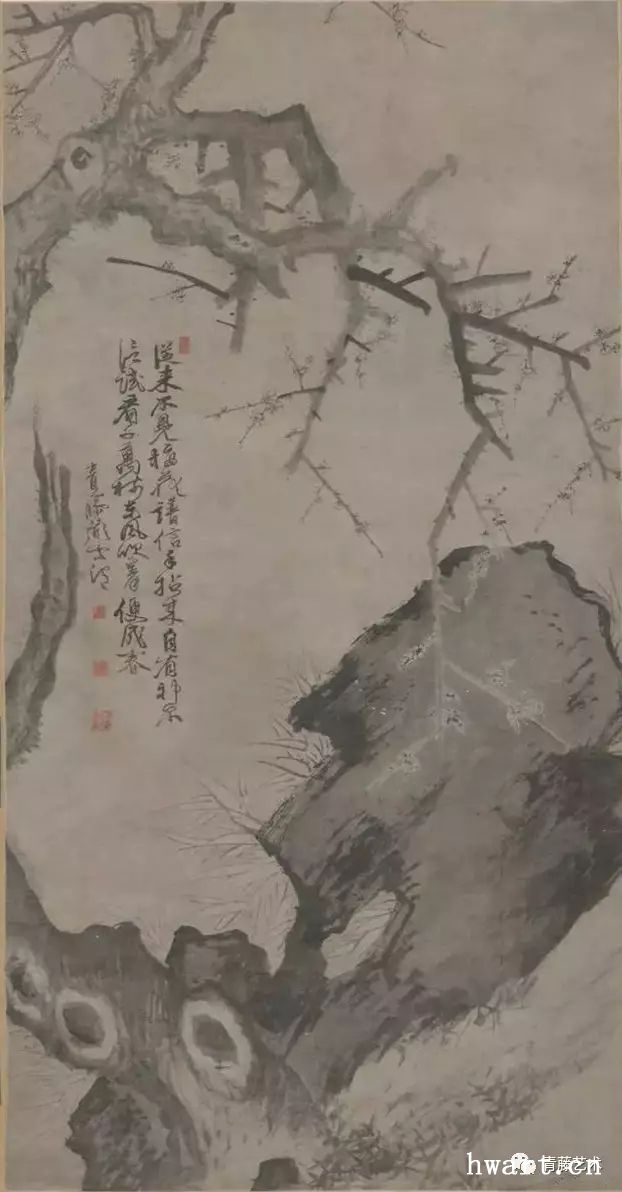 從来不見梅花譜信手拈来自有神不
信試看千萬樹東風吹著便成春
青藤道士渭
青藤艺术
hwart.cn